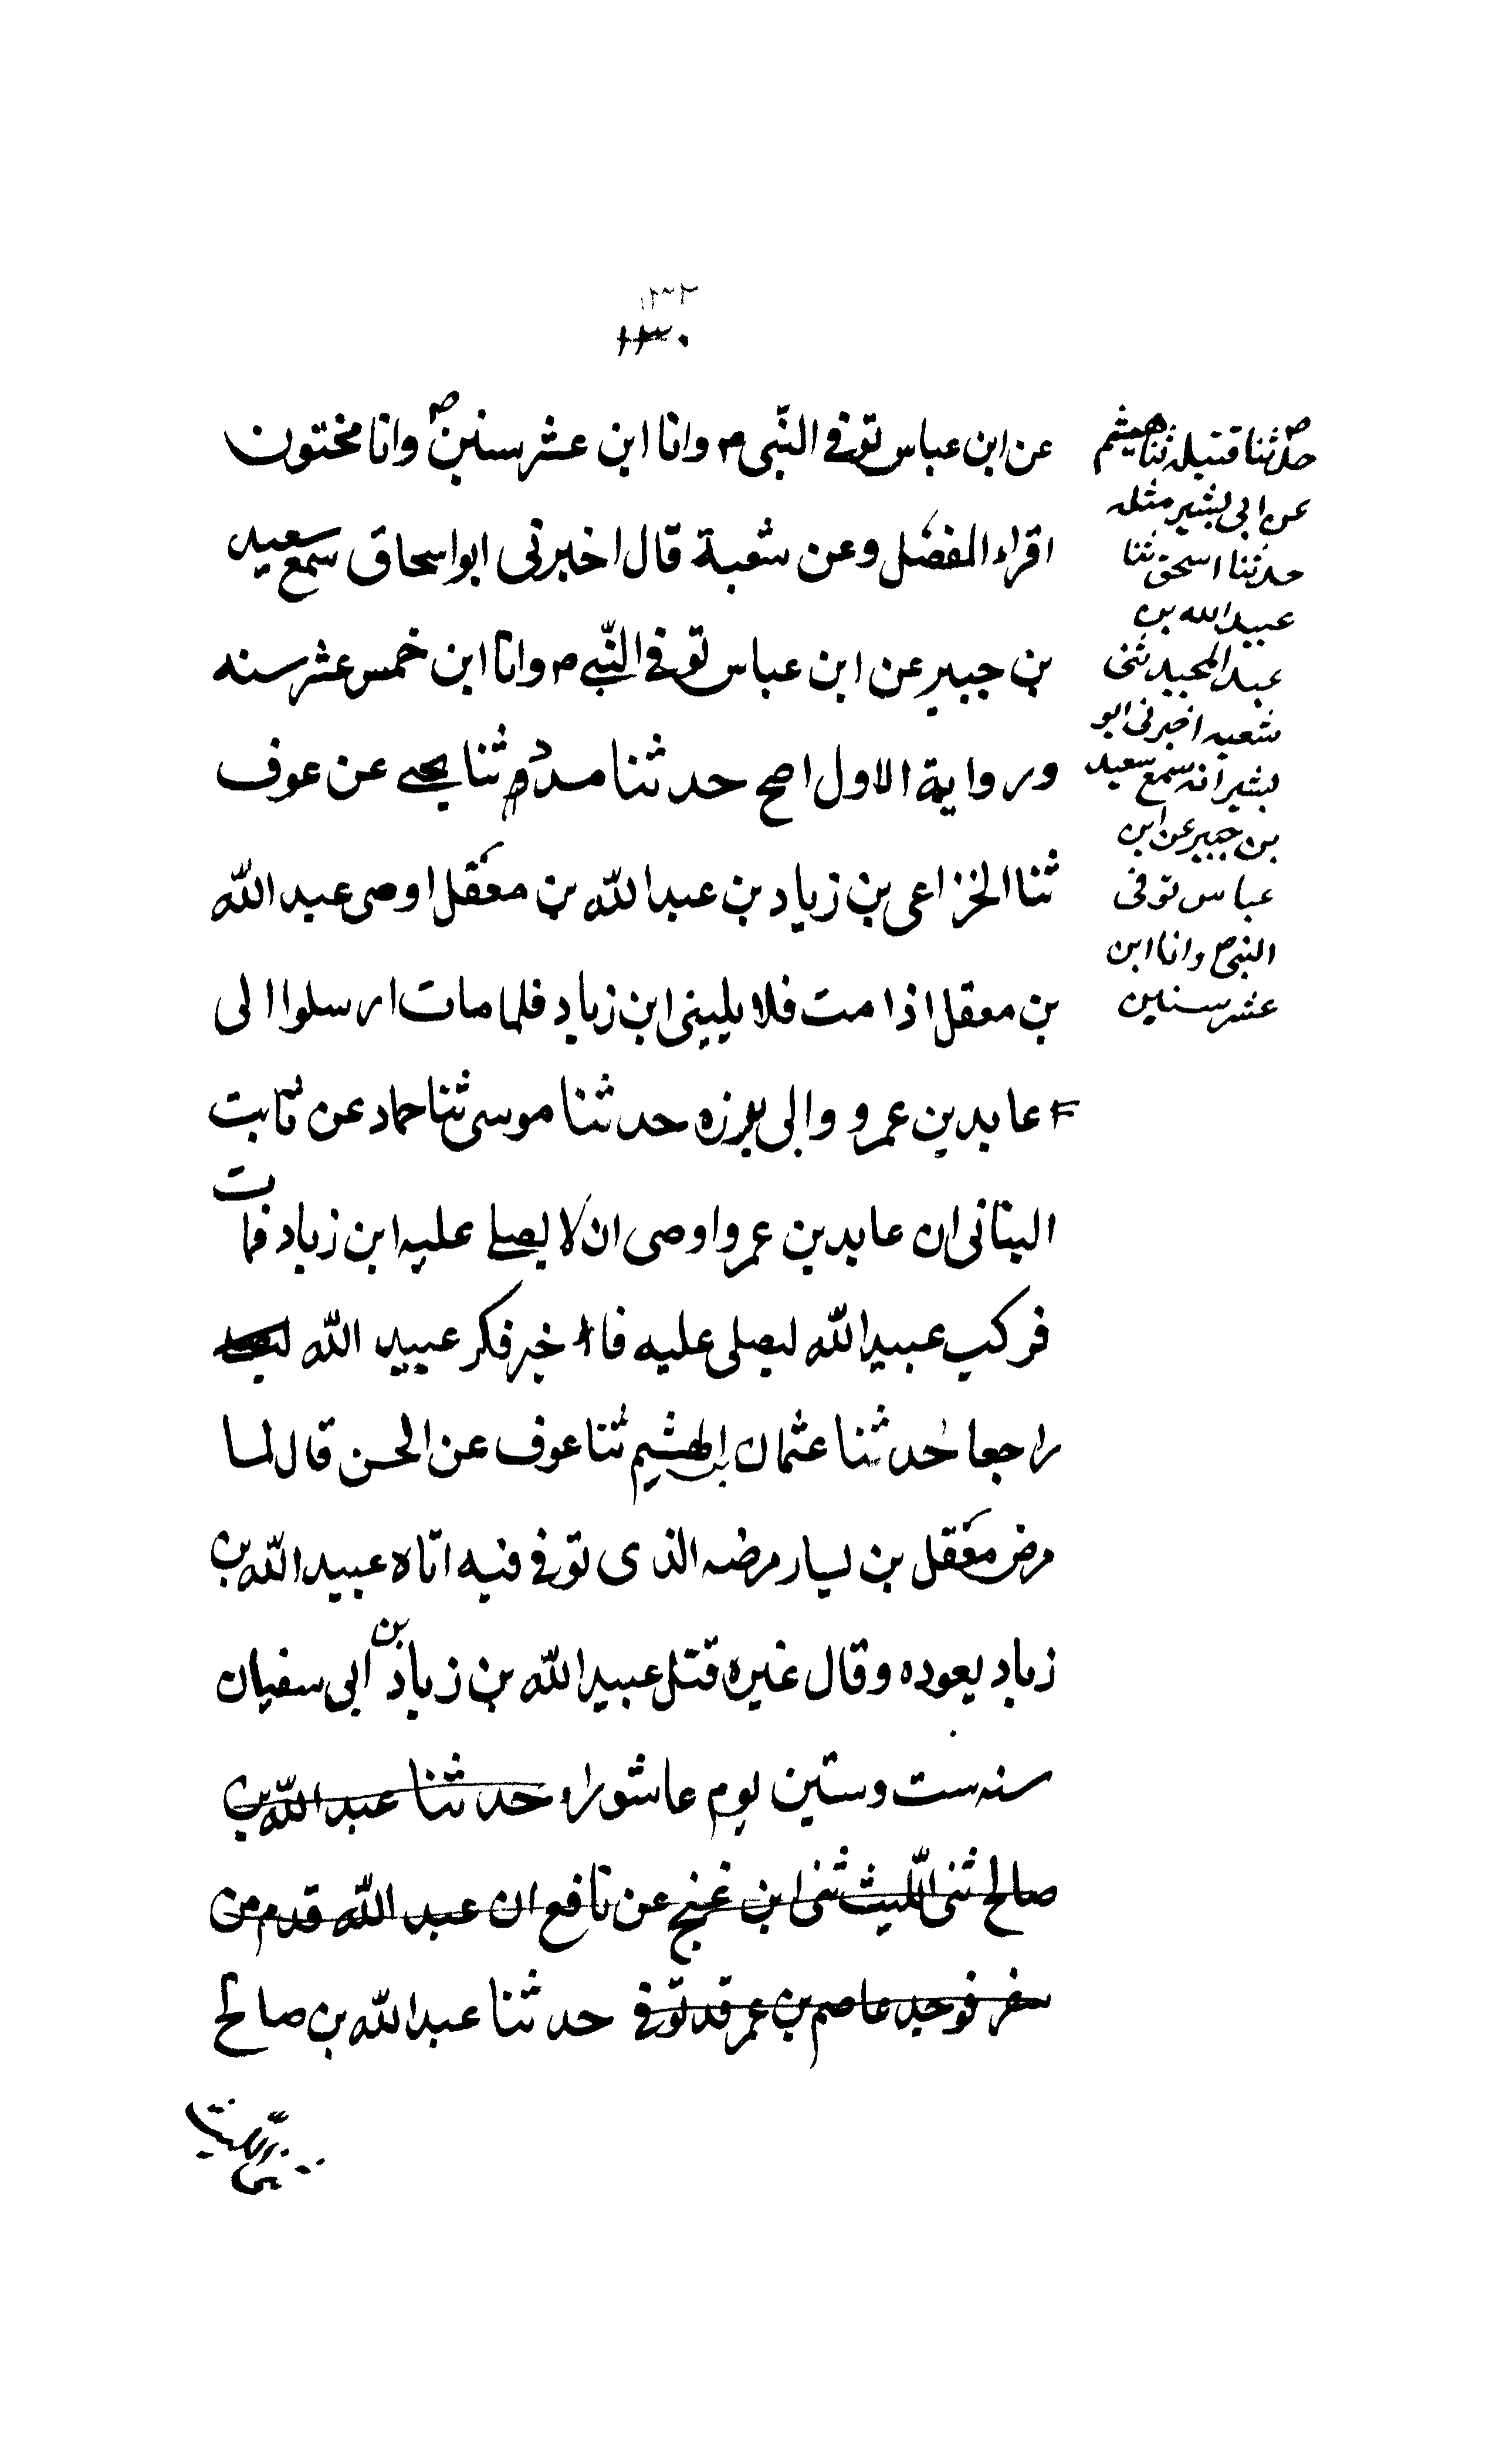 ١٣٢
١٣٠
عن ابن عباس توفي النّبي م وانا ابن عشر سنين ص وانا مختون
اقراء المفضل وعن شعبة قال اخبرني ابو اسحاق سمع سعيد
بن جبير عن ابن عباس توفي النّبي م وانا ابن خمس عشر سنه
ورواية الاول اصح حدثنا مسدد ثنا يحيى عن عوف
ثنا الخزاعي بن زياد بن عبد الله بن معقل اوصى عبد الله
بن معقل اذا مت فلا يليني ابن زياد فلما مات ارسلوا الى
عابد بن عمرو والى برزه حدثنا موسى ثنا حماد عن ثابت
البناني ان عابد بن عمرو اوصى ان لا يصلي عليه ابن زياد فمات
فركب عبيد الله ليصلى عليه فاخبر فكر عبيد الله
راجعا حدثنا عثمان بن الهشيم ثنا عوف عن الحسن قال لما
مرض معقل بن يسار مرضه الذي توفي فيه اتاه عبيد الله بن
زياد يعوده وقال غيره قتل عبيد الله بن زياد بن ابي سفيان
سنه ست وستين يوم عاشوراء حدثنا عبد الله بن
صالح ثنى اللّيث ثنى ابن غنج عن نافع ان عبد الله قدم من
سفر فوجد عاصم بن عمر قد توفي حدثنا عبد الله بن صالح
حدثنا قتيله ثنا هيثم
عن ابي بشير مثله
حدثنا اسحق ثنا
عبيد الله بن
عبد المجيد ثنى
شعبه اخبرني ابو
بشير انه سمع سعيد
بن جبير عن ابن
عباس توفي
النبي ص وانا ابن
عشر سنين